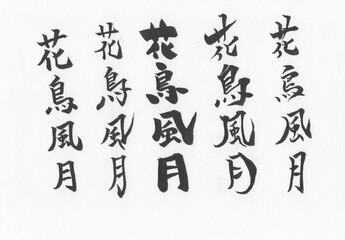 花鳥風月
花鳥風月
花鳥風月
花鳥風月
花鳥風月